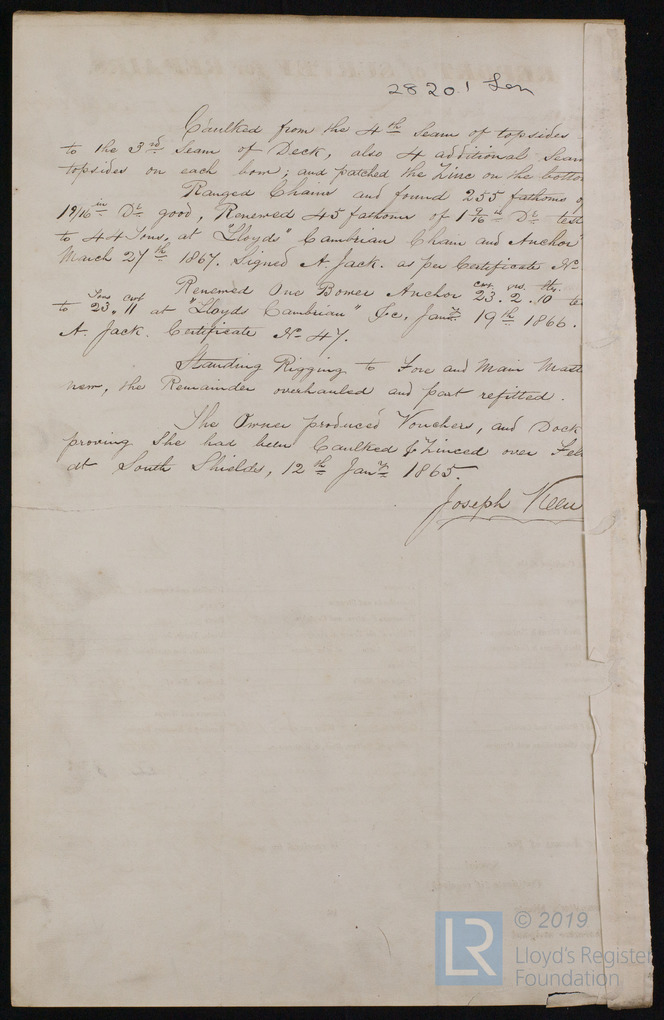 28201 Len
Caulked from the 4th Seam of topsides
to the 3rd Seam of Deck, also 4 additional Seam
topsides on each bow; and patched the Zinc on the botto
Ranged Chains and found 255 fathoms o
1 9/16 in Dr good, Renewed 45 fathoms of 1 9/16 in Dr test
to 44 Tons, at "Lloyds" Cambrian Chain and Anchor
March 27th 1867. Signed A. Jack. as per Certificate No
Renewed One Bower Anchor 23 cwt. 2 qrs. 10 lbs. te
to 23 Tons 11 cwt at "Lloyds Cambrian" &c, Jany 19th 1866.
A. Jack. Certificate No 47.
Standing Rigging to Fore and Main Mast
new, the Remainder overhauled and part refitted.
The Owner produced Vouchers, and Dock
proving She had been Caulked & Zinced over Fel
at South Shields, 12th Jany 1865.
Joseph
© 2019
LR
Lloyd's Register
Foundation